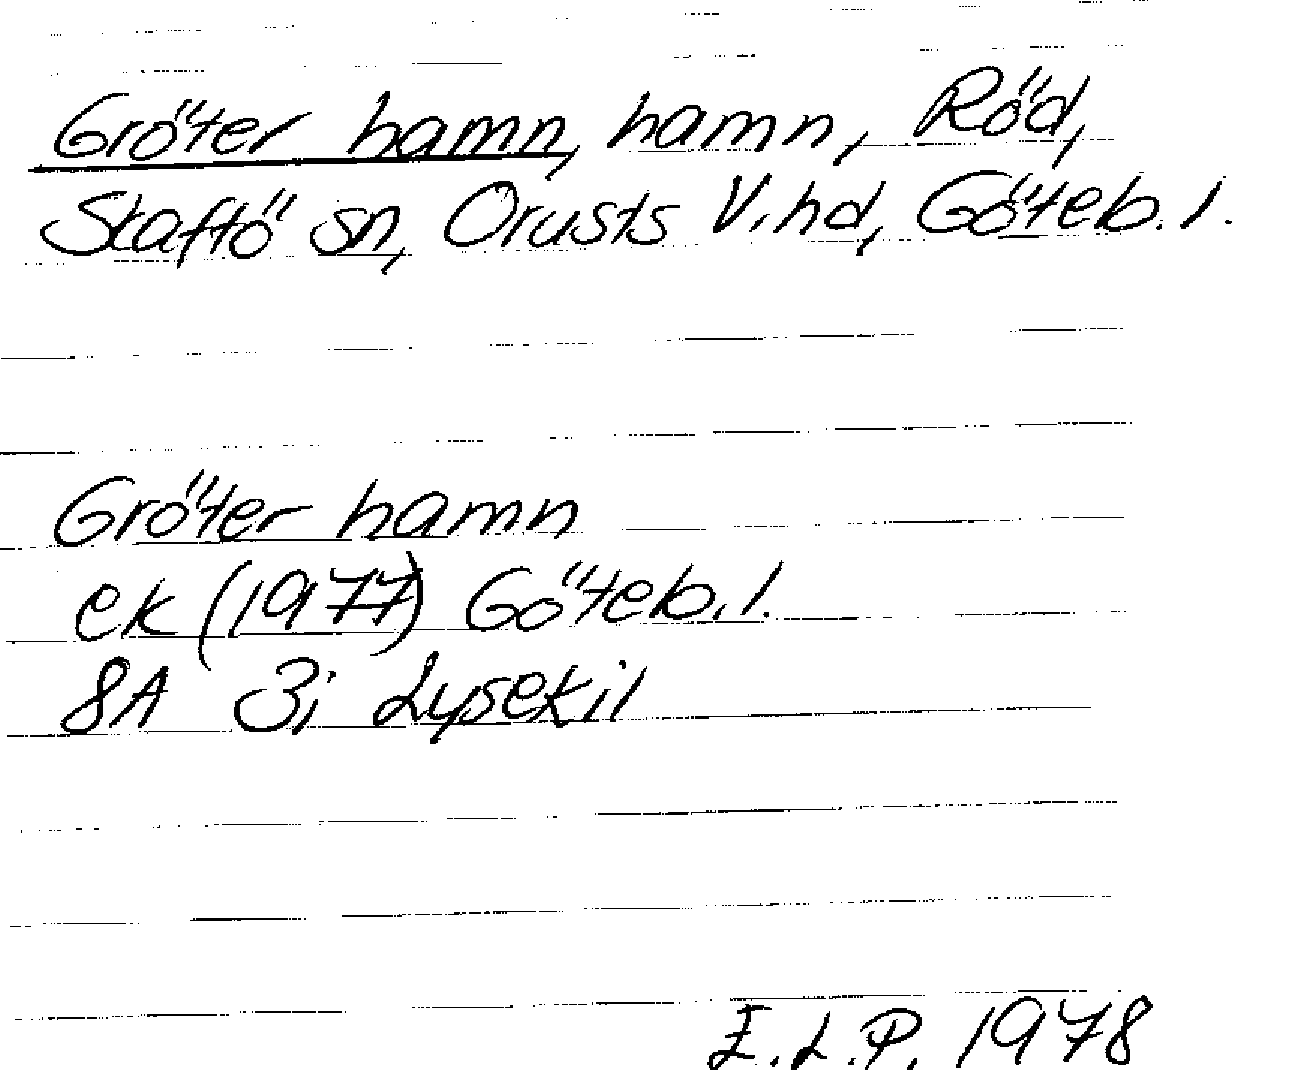 Gröter hamn, hamn, Röd,
Skaftö sn, Orusts V. hd, Göteb. l.
Gröter hamn
ek (1977) Göteb. l.
8A 3i Lysekil
E. L. P. 1978